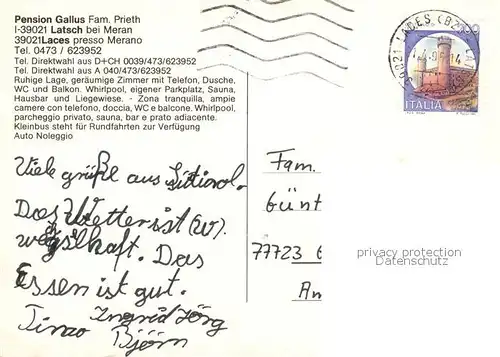 Pension Gallus Fam. Prieth
I-39021 Latsch bei Meran
39021 Laces presso Merano
Tel. 0473 / 623952
Tel. Direktwahl aus D+CH 0039/473/623952
Tel. Direktwahl aus A 040/473/623952
Ruhige Lage, geräumige Zimmer mit Telefon, Dusche,
WC und Balkon. Whirlpool, eigener Parkplatz, Sauna,
Hausbar und Liegewiese. - Zona tranquilla, ampie
camere con telefono, doccia, WC e balcone. Whirlpool,
parcheggio privato, sauna, bar e prato adiacente.
Kleinbus steht für Rundfahrten zur Verfügung
Auto Noleggio
Viele grüße aus Südtirol.
Das Wetter ist (w).
wechslhaft. Das
Essen ist gut.
Ingrid Jörg
Timo Björn
39021 LACES (BZ)
ITALIA
Fam.
Günt
77723 G
An
privacy protection
Datenschutz